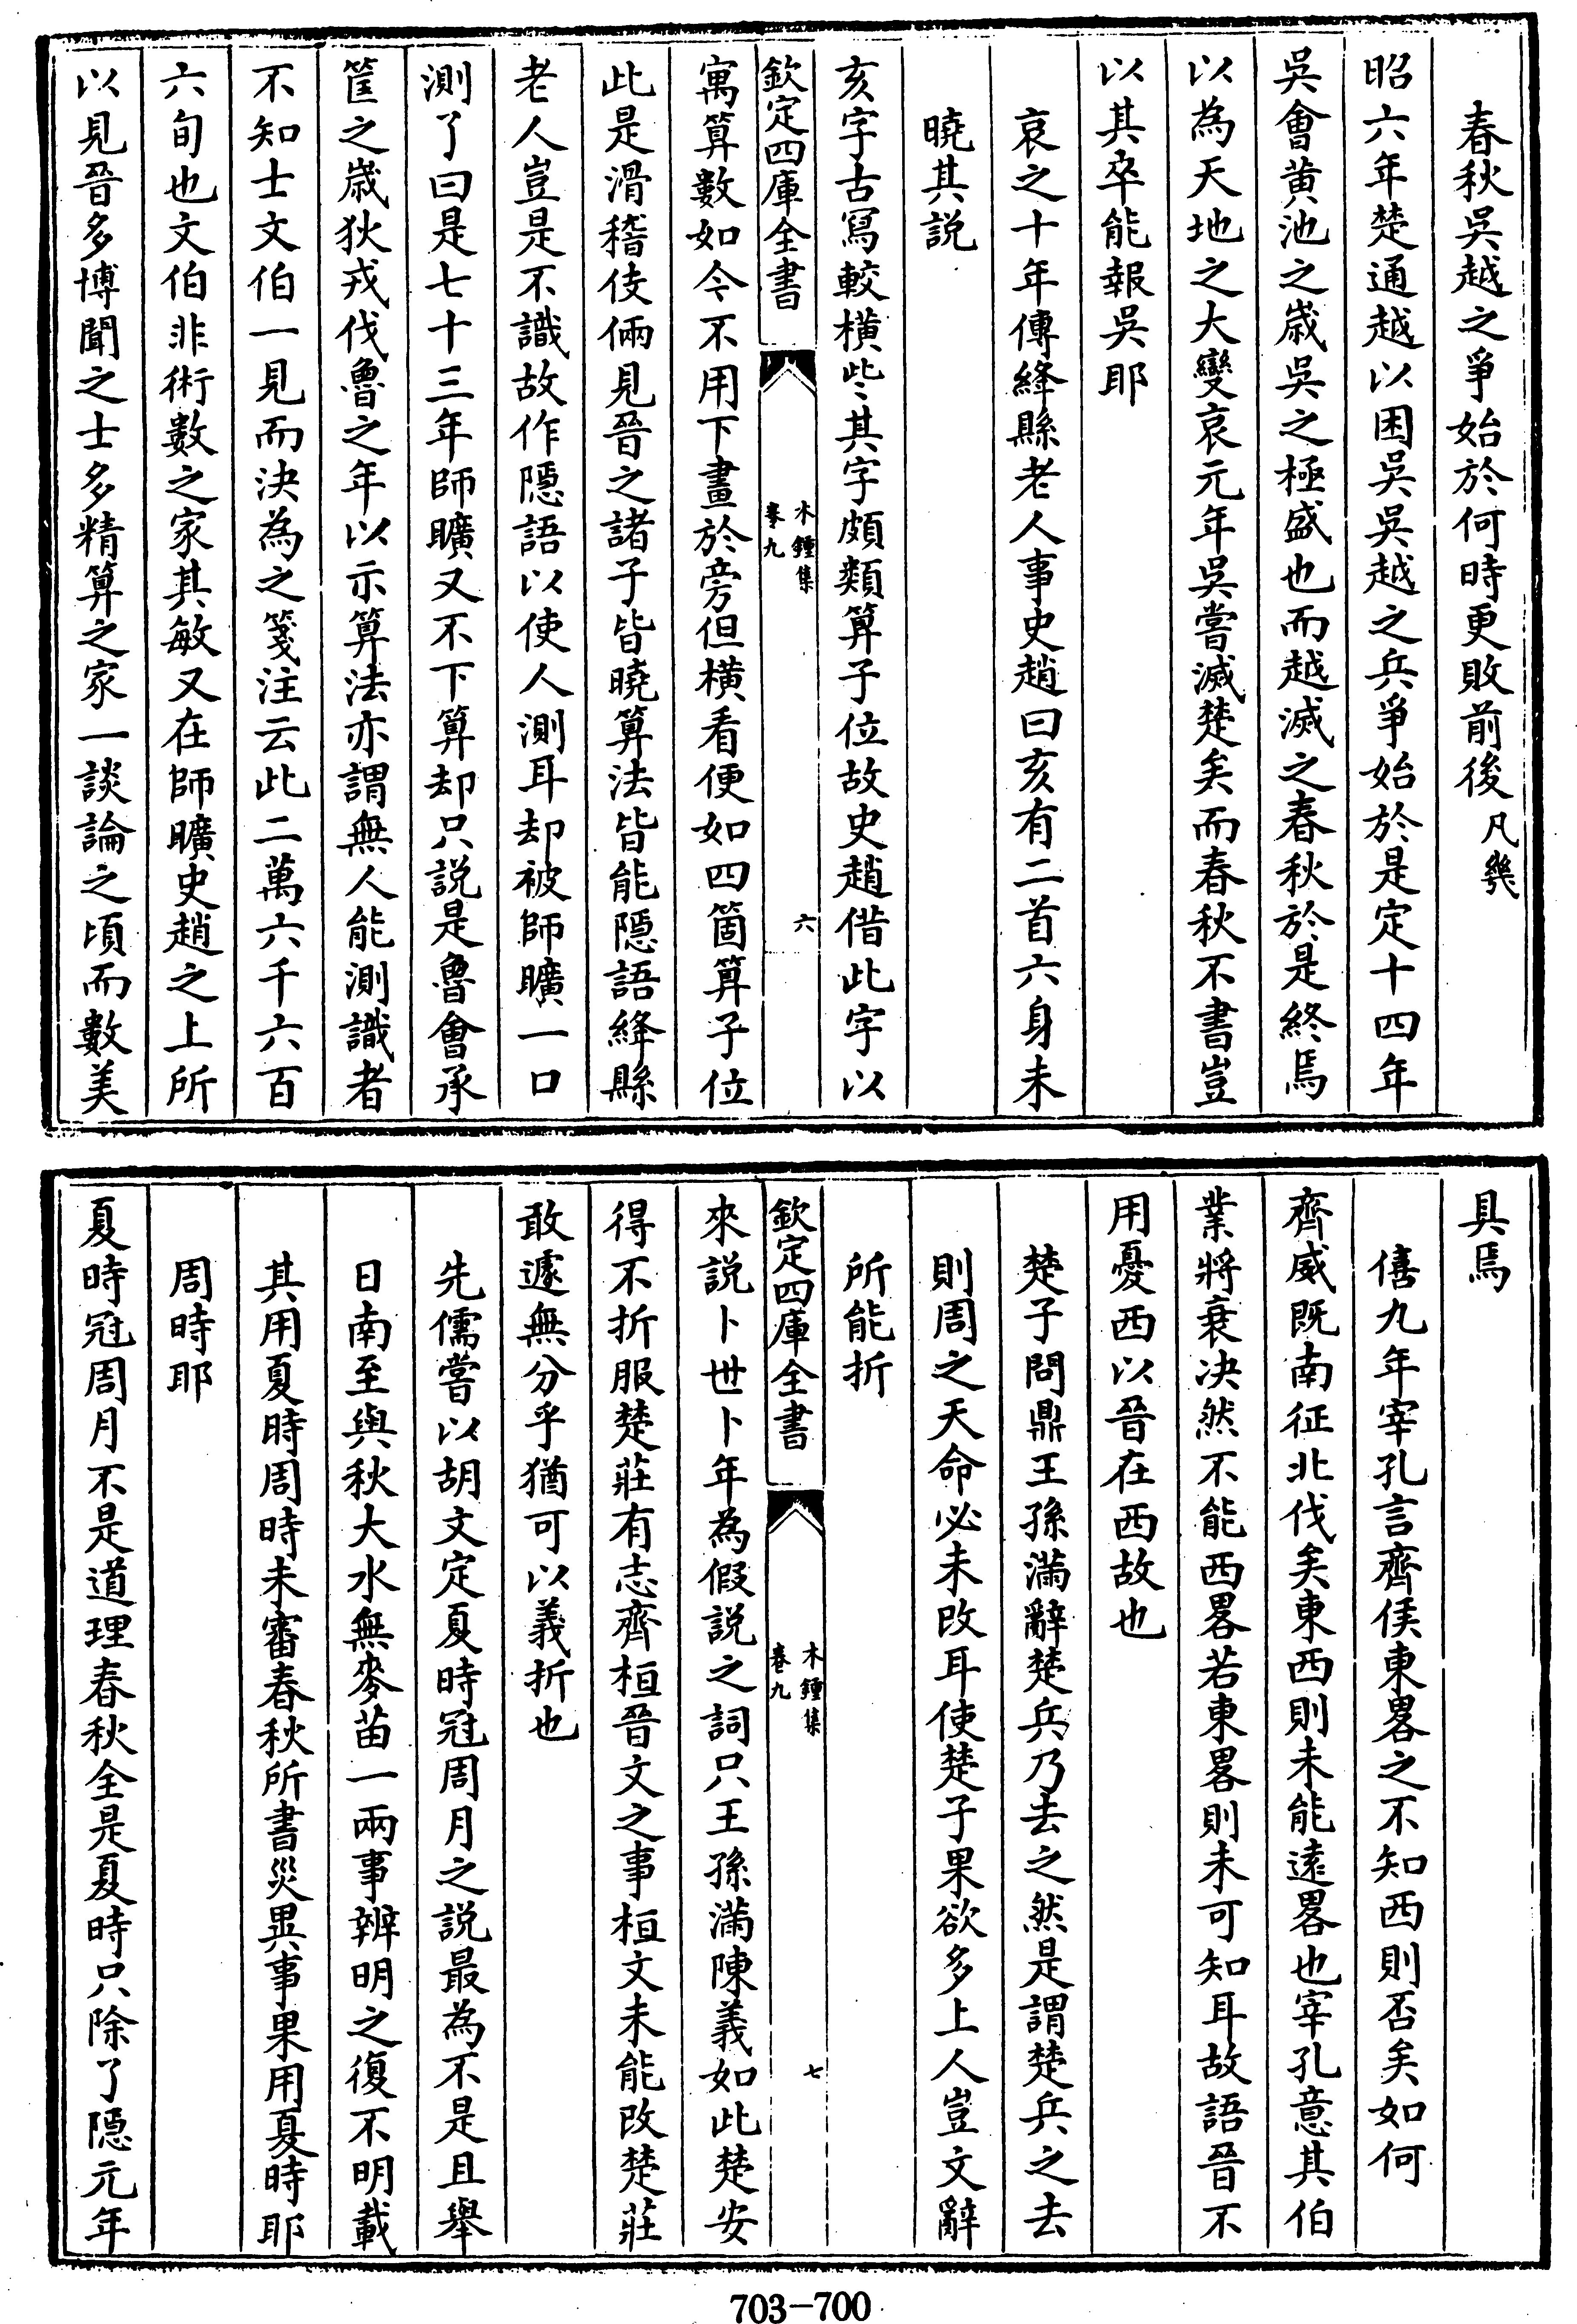 春秋吳越之爭始於何時更敗前後凡幾
昭六年楚通越以困吳吳越之兵爭始於是定十四年
吳會黄池之歲吳之極盛也而越滅之春秋於是終焉
以為天地之大變哀元年吳嘗滅楚矣而春秋不書豈
以其卒能報吳耶
哀之十年傳絳縣老人事史趙曰亥有二首六身未
曉其説
亥字古寫較横些其字頗類算子位故史趙借此字以
欽定四庫全書
木鍾集
卷九
六
寓算數如今不用下畫於旁但横看便如四箇算子位
此是滑稽伎倆見晉之諸子皆曉算法皆能隠語絳縣
老人豈是不識故作隠語以使人測耳却被師曠一口
測了曰是七十三年師曠又不下算却只説是魯㑹承
筐之歲狄戎伐魯之年以示算法亦謂無人能測識者
不知士文伯一見而決為之箋注云此二萬六千六百
六旬也文伯非術數之家其敏又在師曠史趙之上所
以見晉多博聞之士多精算之家一談論之頃而數美
具焉
僖九年宰孔言齊侯東畧之不知西則否矣如何
齊威既南征北伐矣東西則未能逺畧也宰孔意其伯
業將衰決然不能西畧若東畧則未可知耳故語晉不
用憂西以晉在西故也
楚子問鼎王孫滿辭楚兵乃去之然是謂楚兵之去
則周之天命必未改耳使楚子果欲多上人豈文辭
所能折
欽定四庫全書
木鍾集
卷九
七
來説卜世卜年為假説之詞只王孫滿陳義如此楚安
得不折服楚莊有志齊桓晉文之事桓文未能改楚莊
敢遽無分乎猶可以義折也
先儒嘗以胡文定夏時冠周月之説最為不是且舉
日南至與秋大水無麥苗一兩事辨明之復不明載
其用夏時周時未審春秋所書災異事果用夏時耶
周時耶
夏時冠周月不是道理春秋全是夏時只除了隠元年
703-700